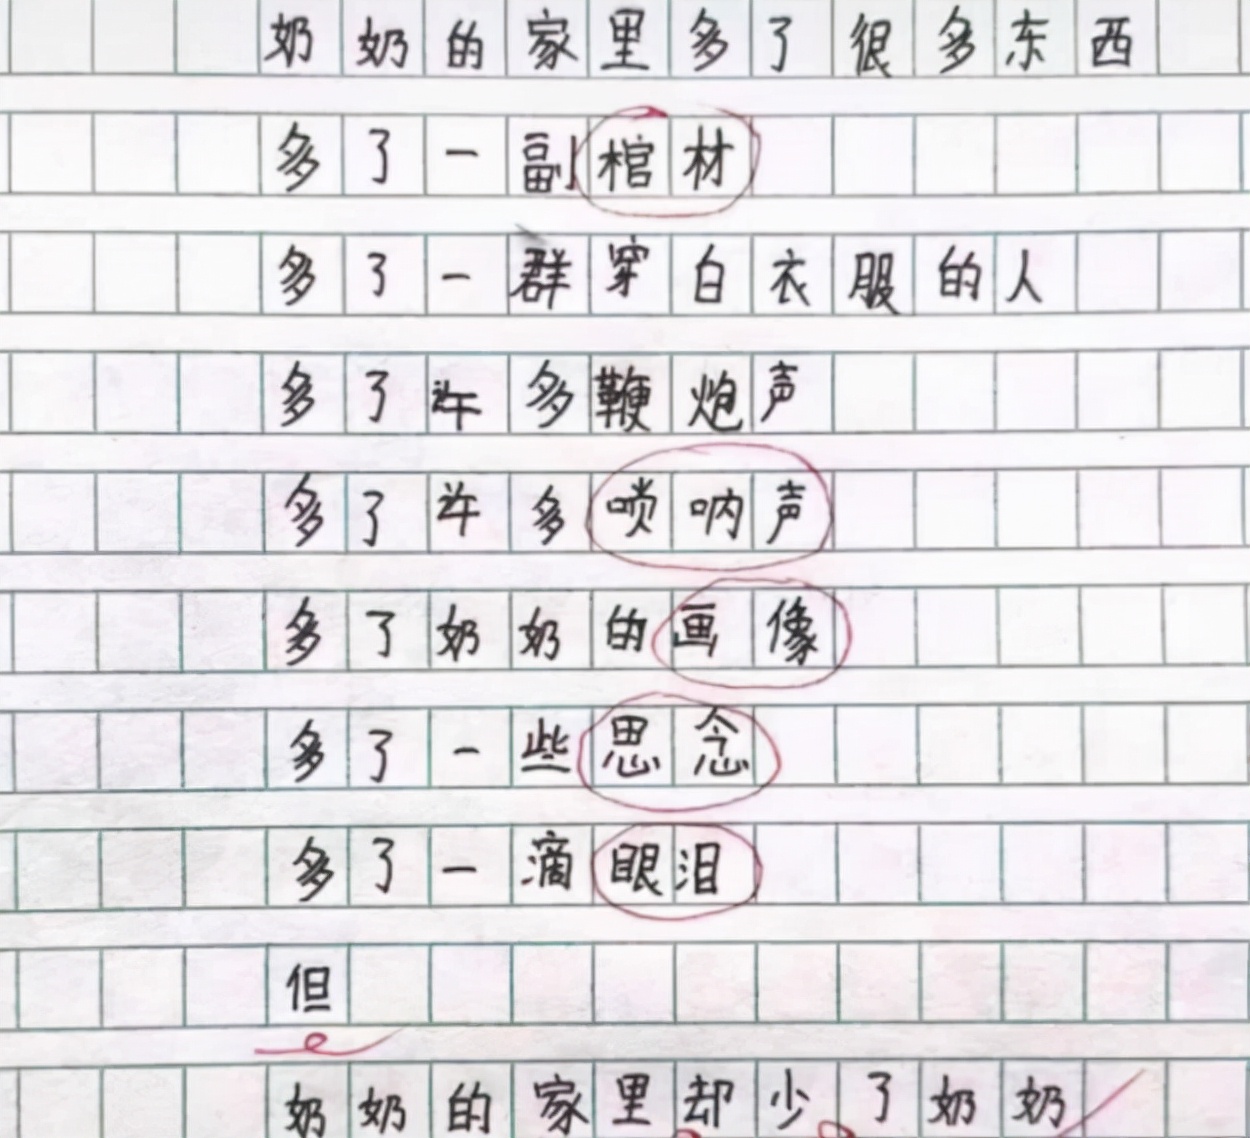 奶奶的家里多了很多东西
多了一副棺材
多了一群穿白衣服的人
多了许多鞭炮声
多了许多唢呐声
多了奶奶的画像
多了一些思念
多了一滴眼泪
但
奶奶的家里却少了奶奶